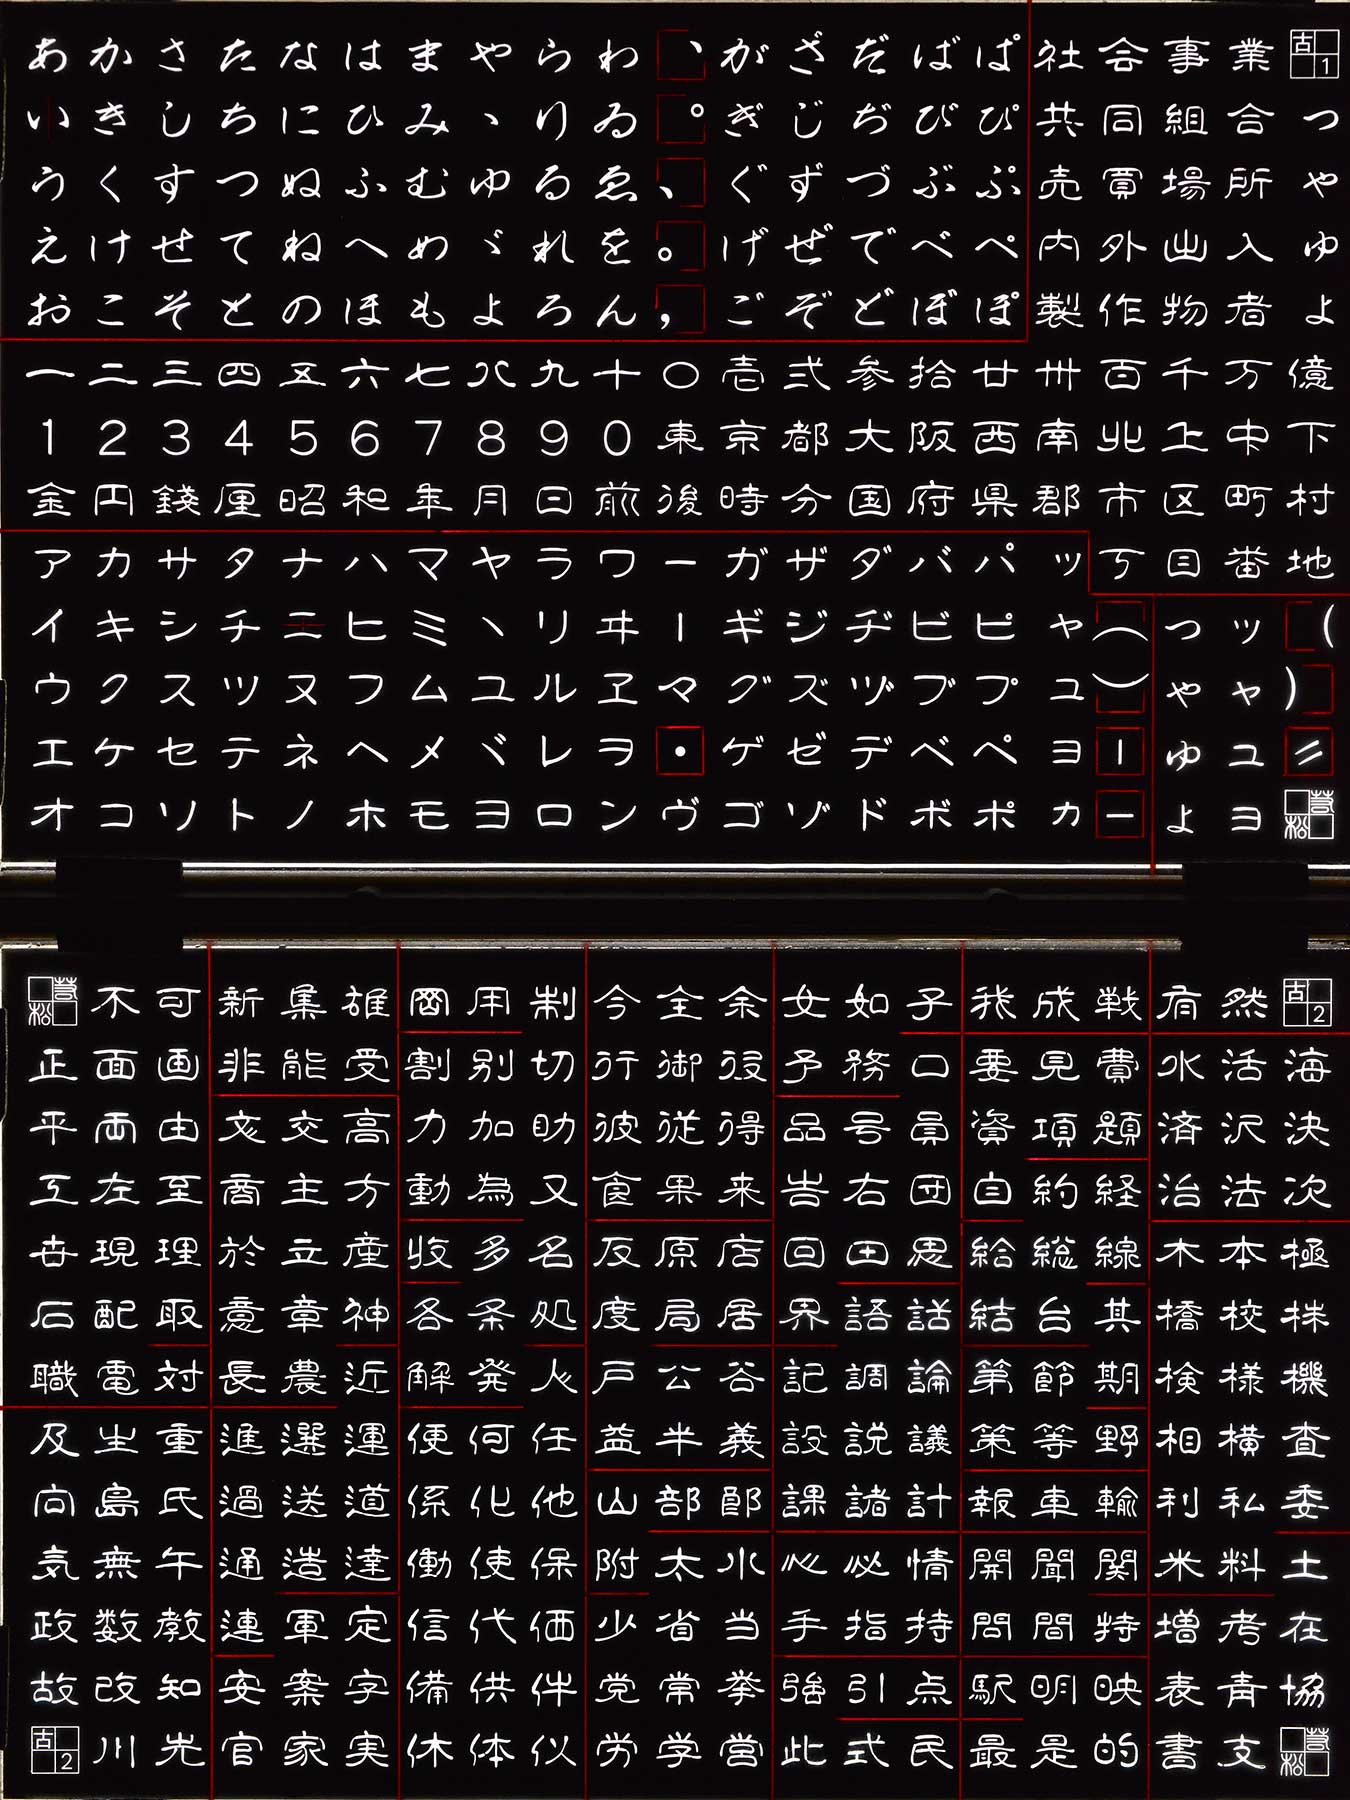 あかさたなはまやらわ、がざだばぱ社会事業古1
いきしちにひみヽりゐ。ぎじぢびぴ共同組合っ
うくすつぬふむゆるゑ、ぐずづぶぷ売買場所ゃ
えけせてねへめゞれを。げぜでべぺ内外出入ゅ
おこそとのほもよろん，ごぞどぼぽ製作物者ょ
一二三四五六七八九十〇壱弐参拾廿卅百千万億
1234567890東京都大阪西南北上中下
金円錢厘昭和年月日前後時分国府県郡市区町村
アカサタナハマヤラワーガザダバパッ丁目番地
イキシチニヒミヽリヰ｜ギジヂビピャ︵っッ（
ウクスツヌフムユルヱマグズヅブプュ︶ゃャ）
エケセテネヘメヾレヲ・ゲゼデベペョ｜ゅュ〃
オコソトノホモヨロンヴゴゾドボポヵーょョ
不可新集雄岡用制今全余女如子我成戦有然古2
正面画非能受割別切行御役予務口要見費水活海
平両由文交高力加助彼従得品号員資項題済沢決
工左至商主方動為又食果来告右団自約経治法次
世現理於立産収多名反原店回田思給総線木本極
石配取意章神各条処度局居界語話結台其橋校株
職電対長農近解発人戸公谷記調論第節期検様機
及生重進選運便何任益半義設説議策等野相横査
向島氏過送道係化他山部郎課諸計報車輸利私委
気無午通造達働使保附太小心必情開聞関米料土
政数教連軍定信代価少省当手指持問間特増考在
故改知安案字備供件党常挙強引点駅明映表青協
古2川光官家実休体似労学営此式民最是的書支